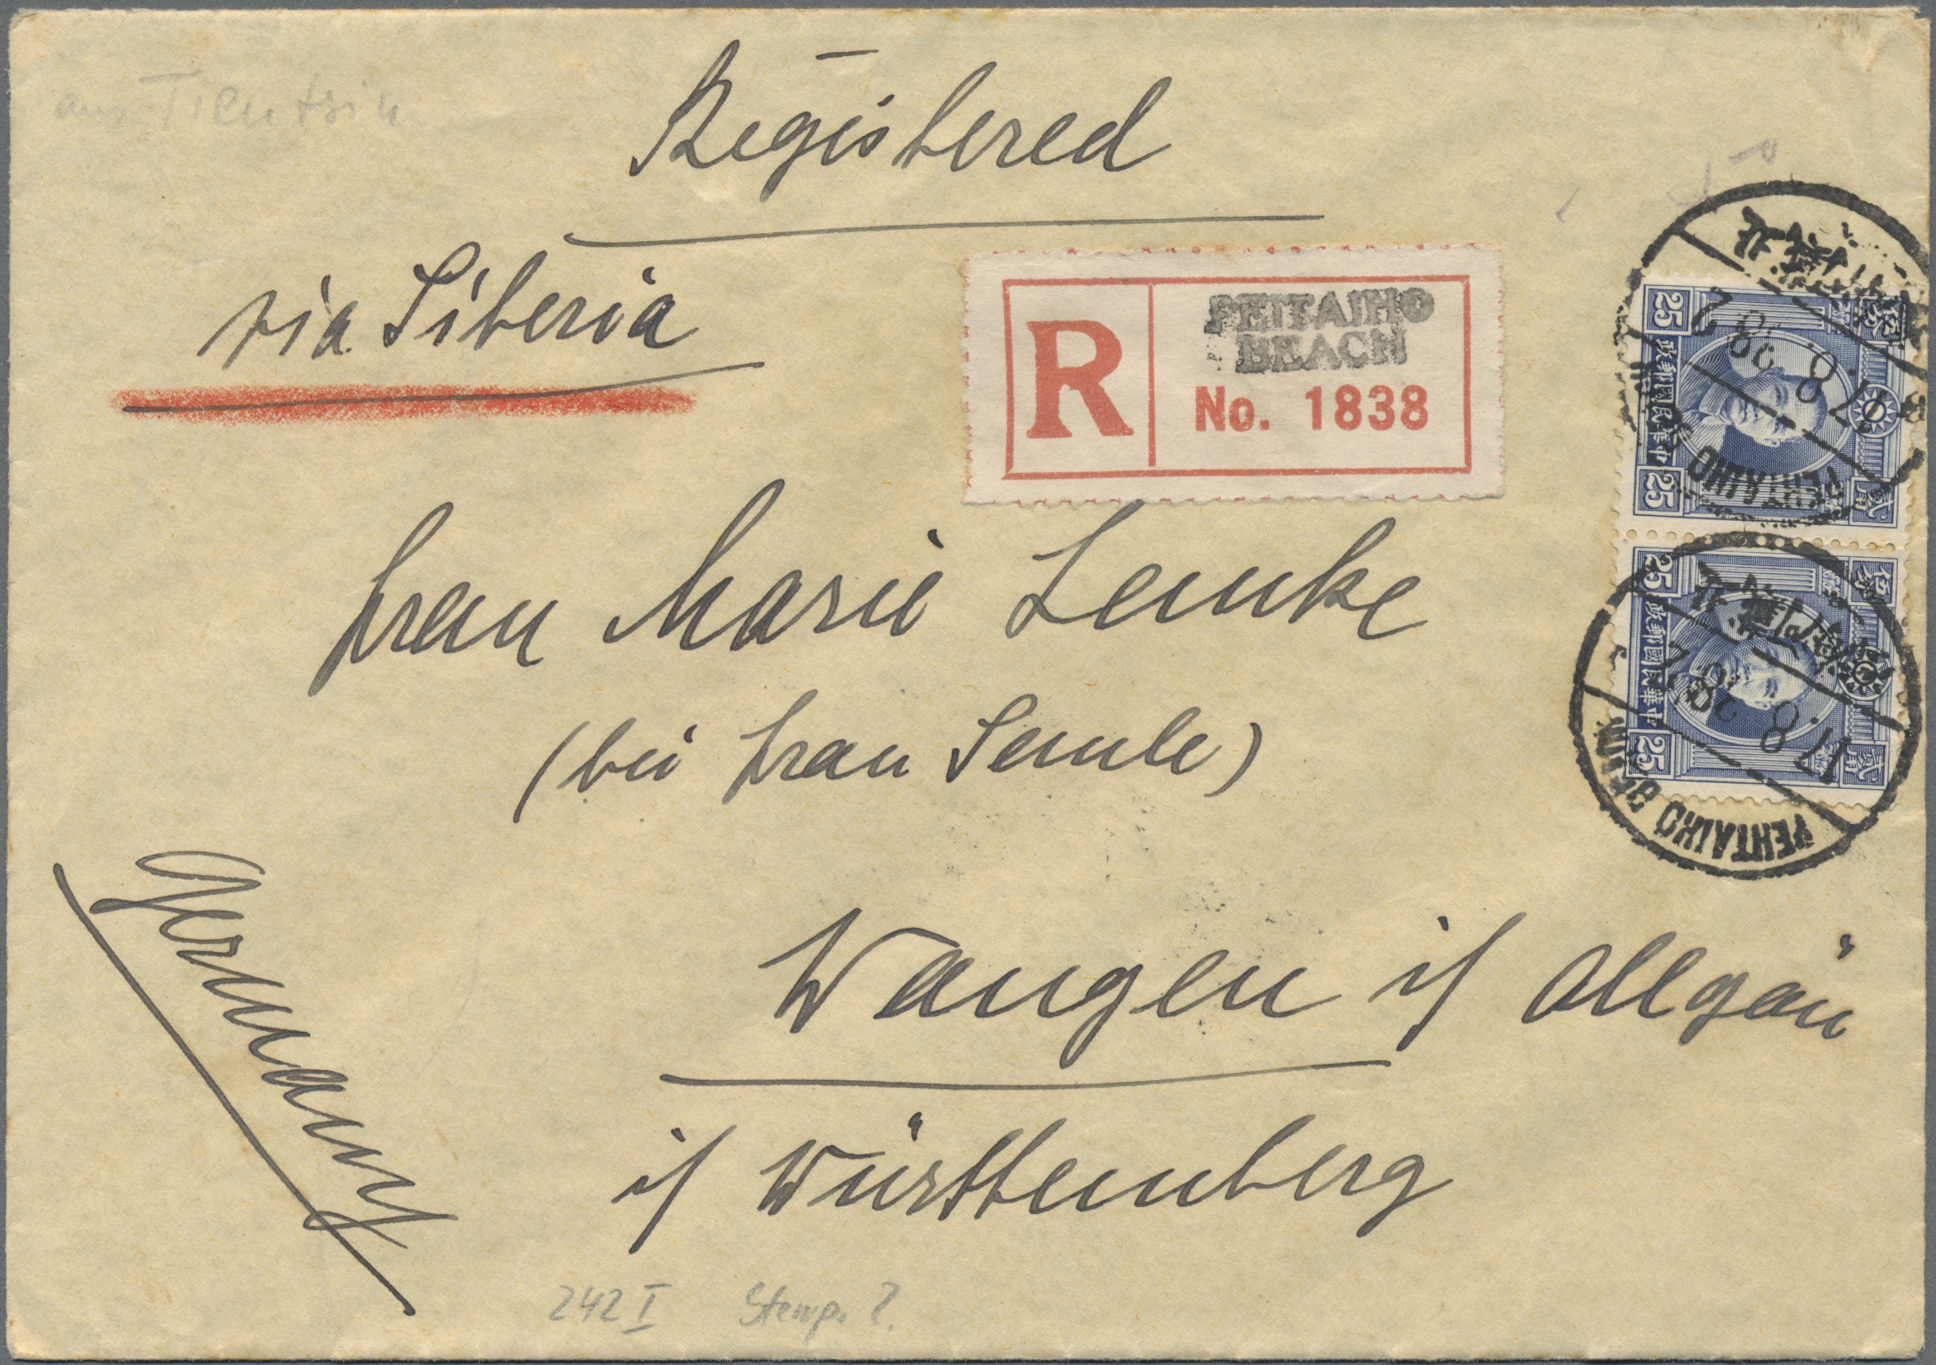 aus Tientsin
Registered
via Siberia
R
PEITAIHO
BEACH
No. 1838
Frau Marie Lemke
(bei Frau Semle)
Wangen i/ Allgäu
i/ Württemberg
Germany
242 I Stemp. ?
25
中華民國郵政
25
PEITAIHO BEACH
17.8
25
中華民國郵政
25
PEITAIHO BEACH
17.8